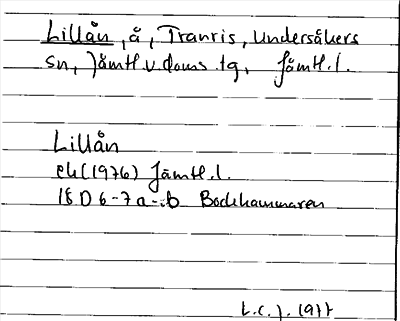 Lillån, å, Tranris, Undersåkers
sn, Jämtl.v.doms.tg, Jämtl.l.
Lillån
ek (1976) Jämtl.l.
18 D 6-7 a-b Bodhammaren
L.C.J. 1977